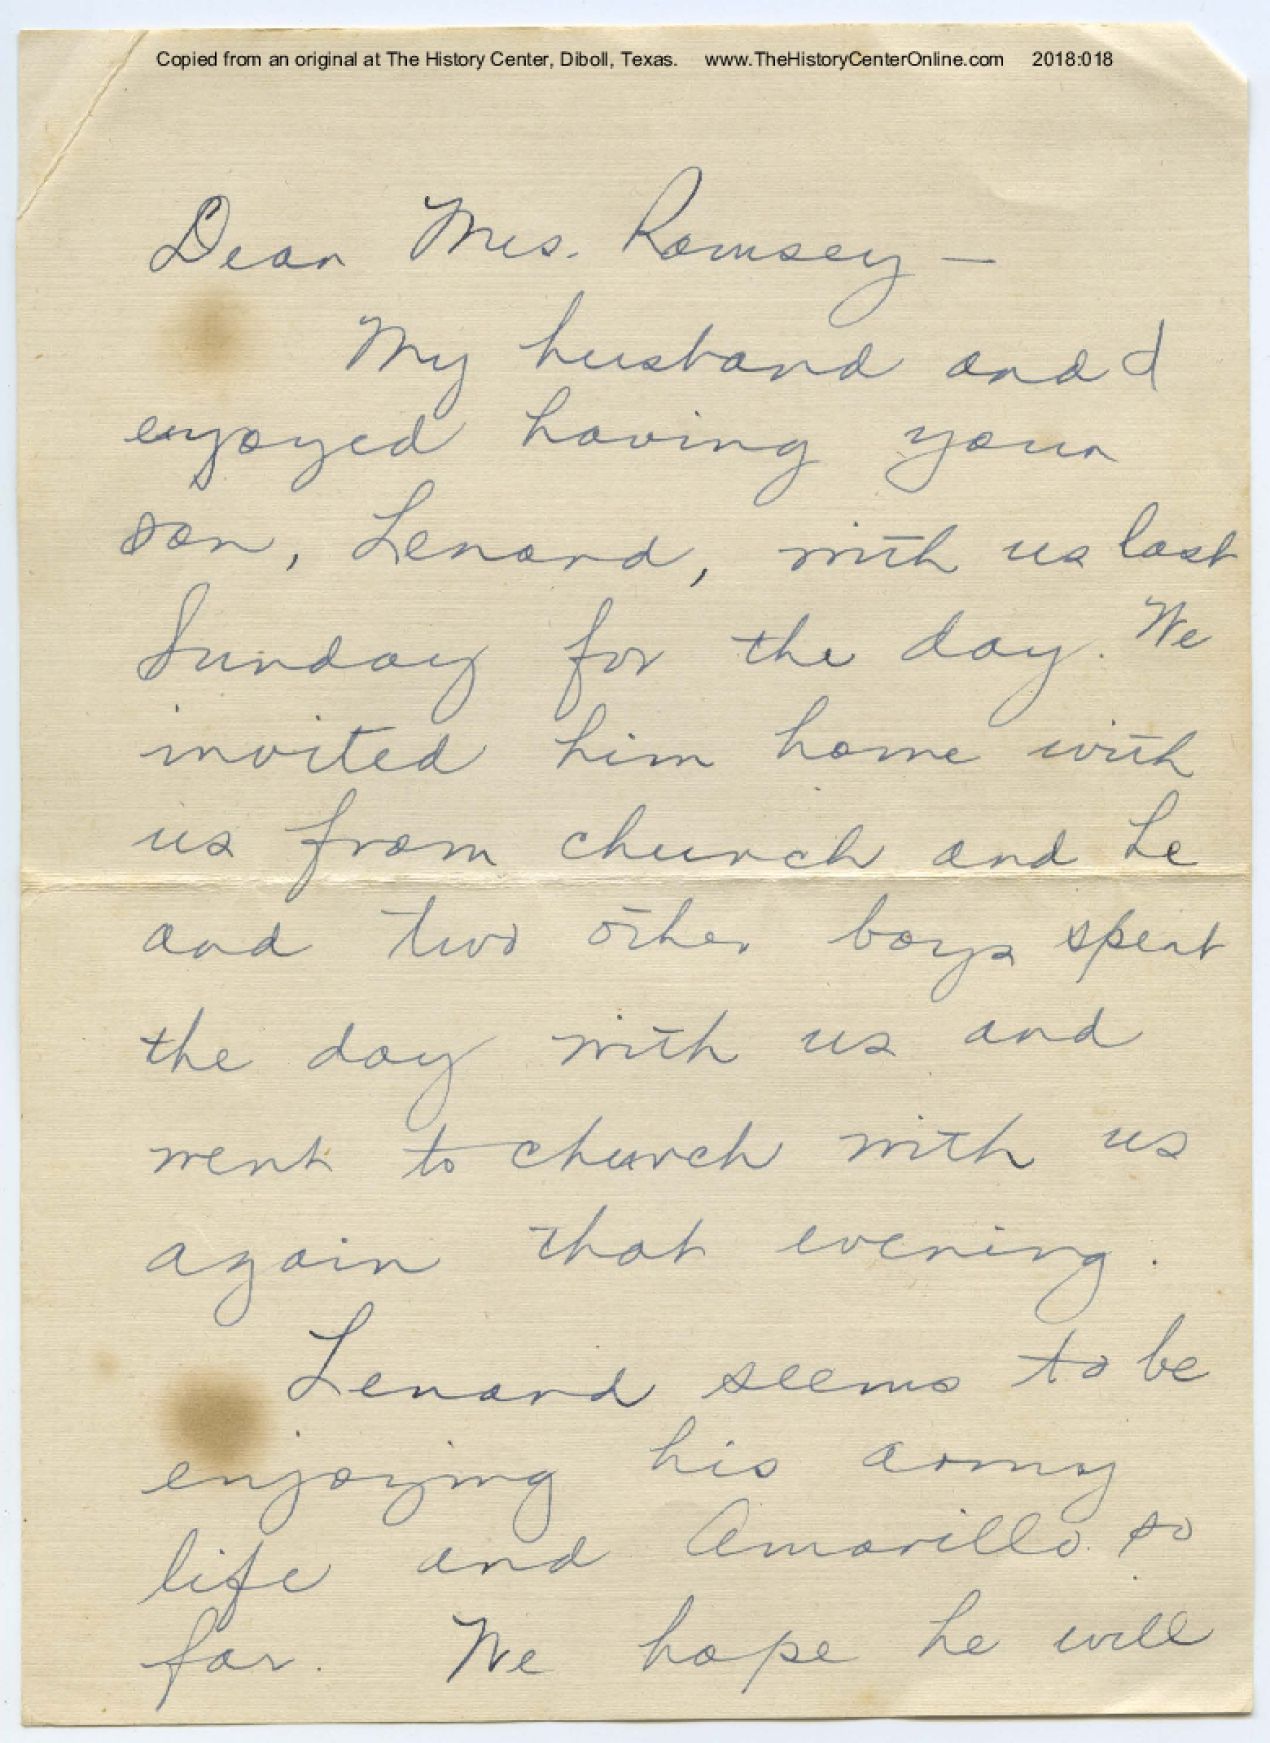 Copied from an original at The History Center, Diboll, Texas. www.TheHistoryCenterOnline.com 2018:018
Dear Mrs. Ramsey —
My husband and I
enjoyed having your
son, Lenard, with us last
Sunday for the day. We
invited him home with
us from church and he
and two other boys spent
the day with us and
went to church with us
again that evening.
Lenard seems to be
enjoying his army
life and Amarillo so
far. We hope he will